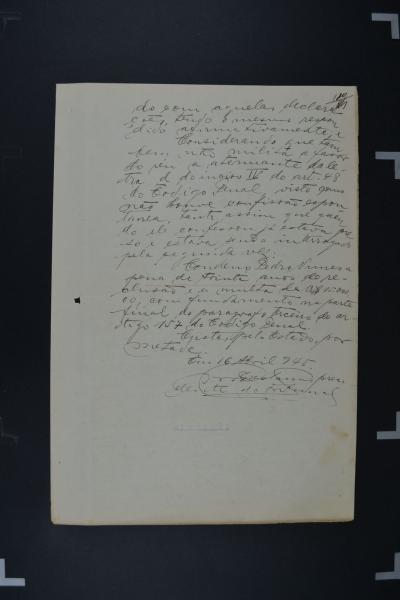 do com aquelas declara
ções, tendo o mesmo respon
dido afirmativamente;
Considerando que tam
bem não milita a favor
do réu a atenuante da le
tra d do inciso IV do art. 48
do Codigo Penal, visto como
não houve confissão espon
tanea, tanto assim que quan
do ele confessou já estava pre
so e estava sendo interrogado
pela segunda vez,
Condeno Pedro
pena de trinta anos de re
clusão e a multa de
com fundamento na parte
final do paragrafo terceiro do ar
tigo 157 do Codigo Penal.
Custas pelo Estado, por
metade.
Em 16 Abril 945
presi
dente do Tribunal